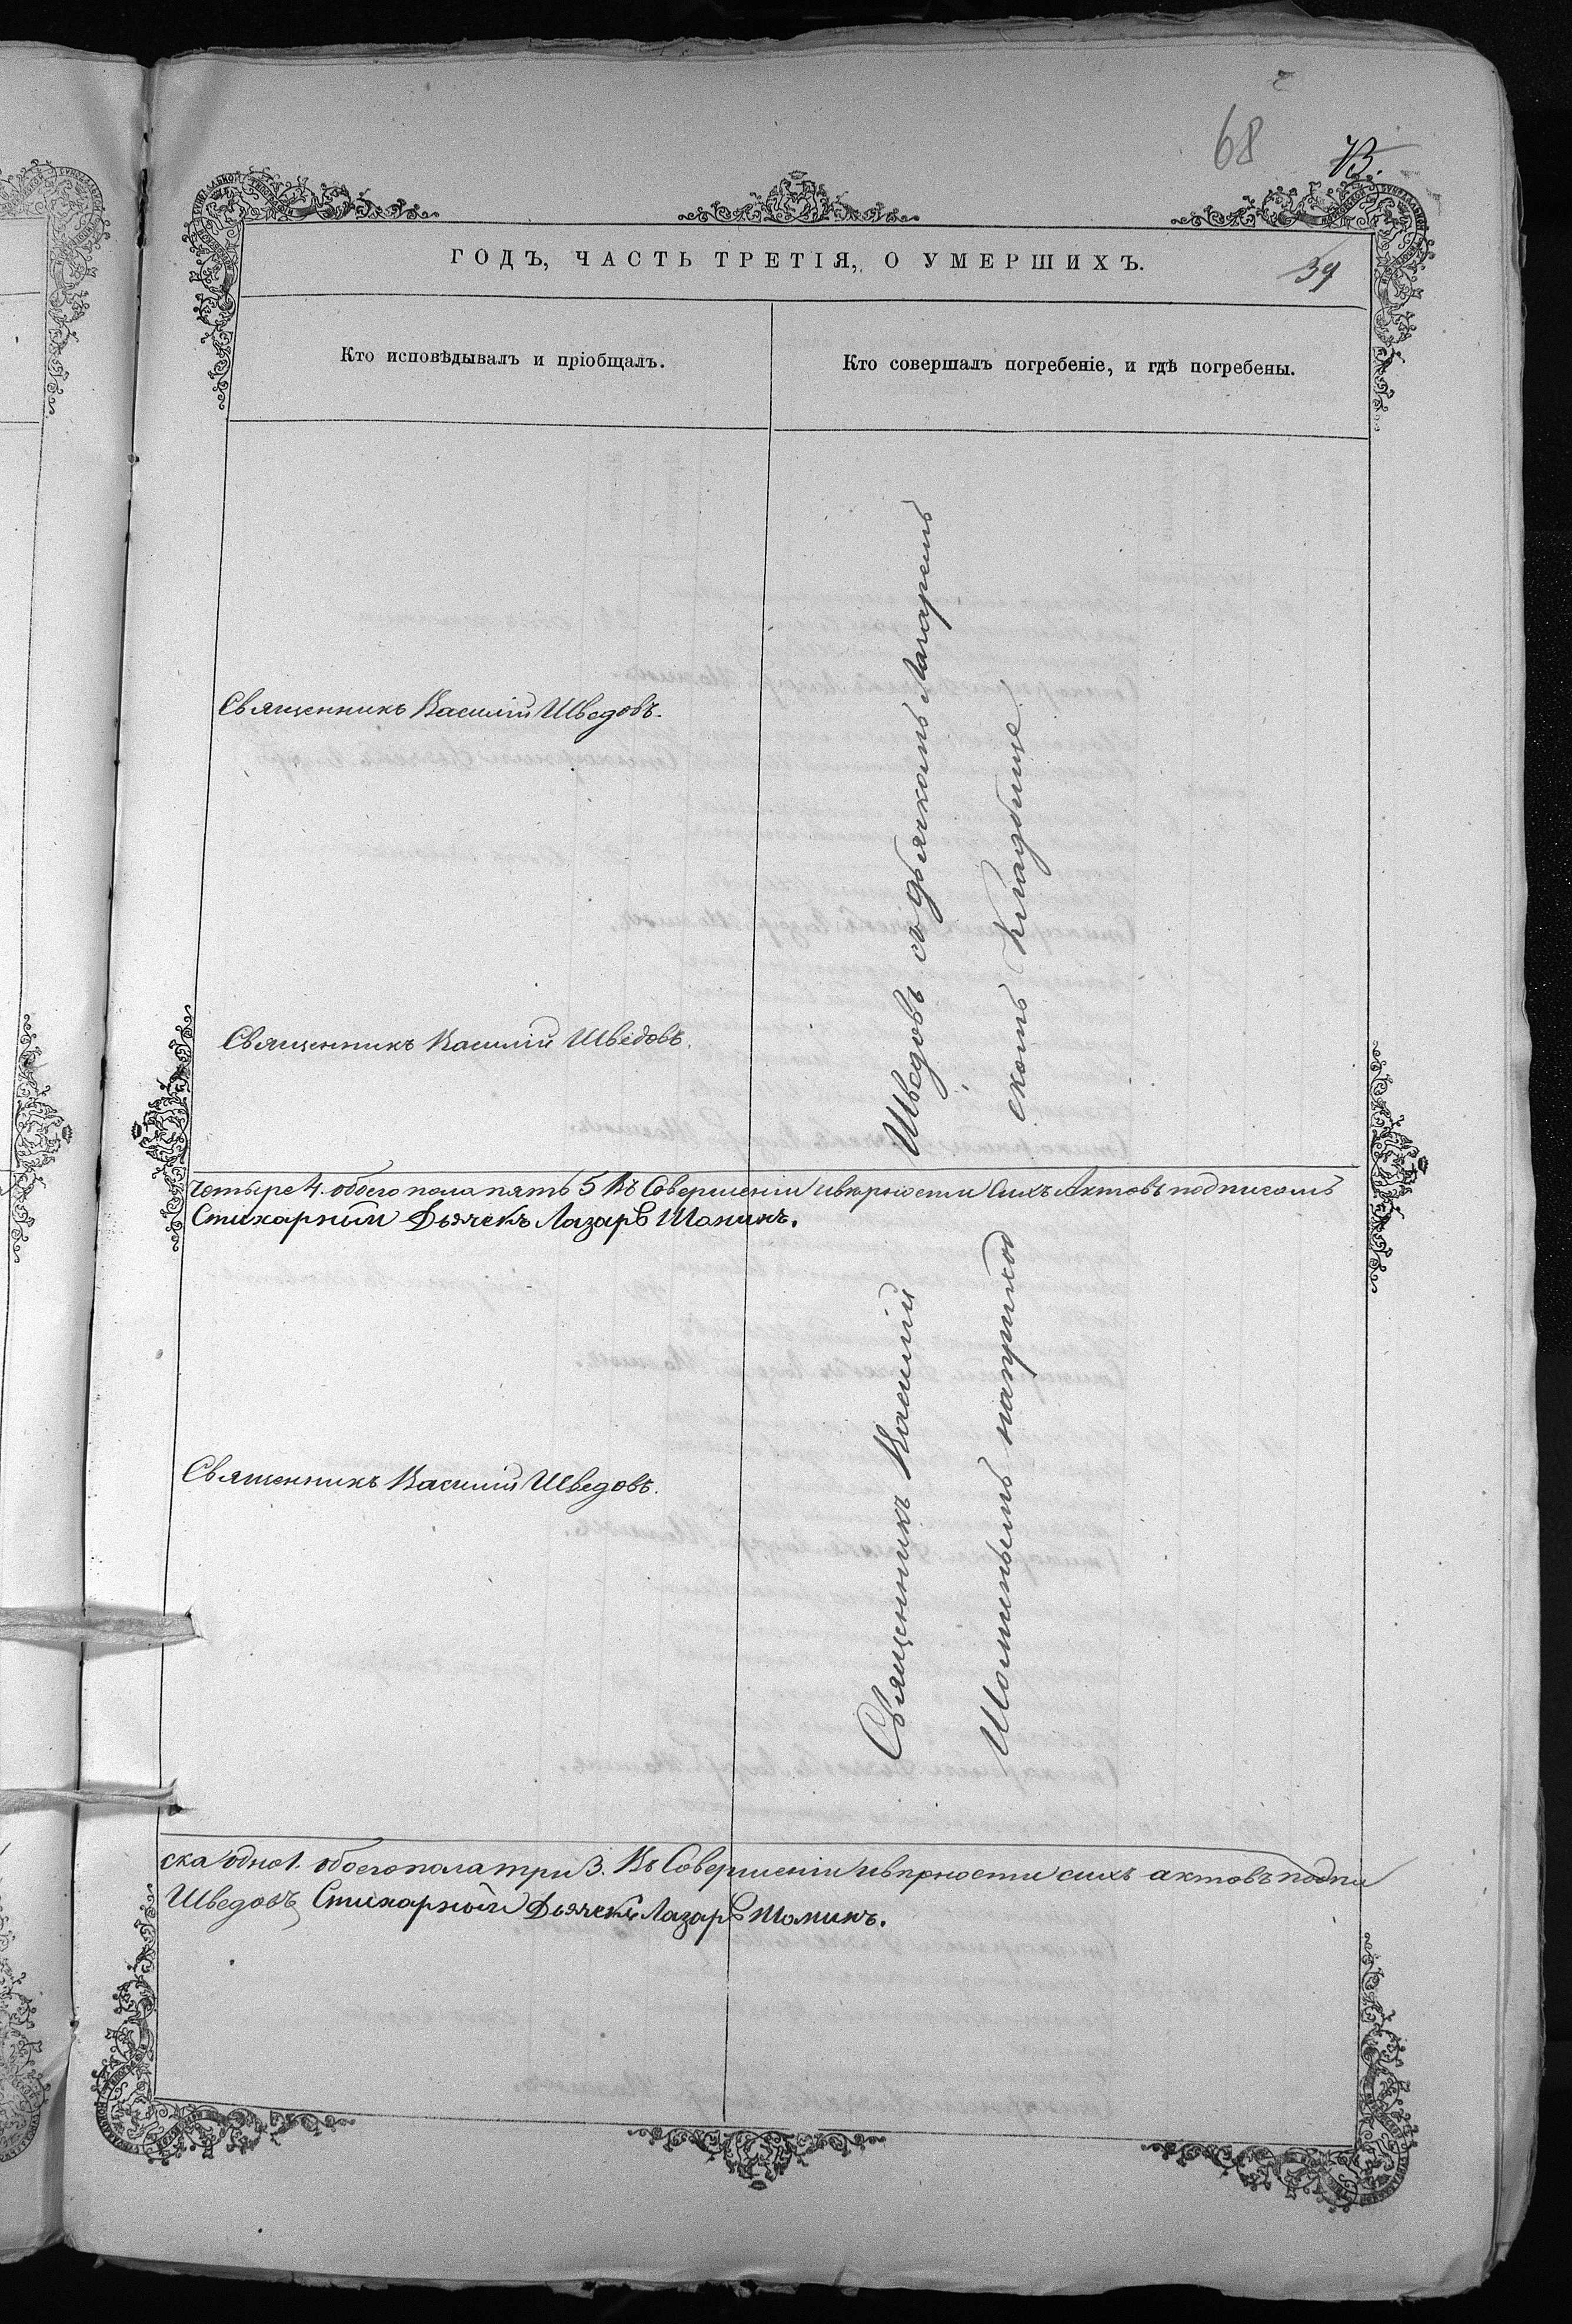 68
39
ГОДЪ, ЧАСТЬ ТРЕТІЯ, О УМЕРШИХЪ.
Кто исповѣдывалъ и пріобщалъ.
Кто совершалъ погребеніе, и гдѣ погребены.
Священникъ Василій Шведовъ.
Священникъ Василій Шведовъ.
четыре 4. обоего пола пять 5 Въ Совершеніи и вѣрности Сихъ Актовъ подписомъ
Стихарный Дьячекъ Лазарь Шоминъ.
Священникъ Василій Шведовъ.
Священникъ Василій Шведовъ со дьячкомъ Лазаремъ
Шоминымъ на приход
скомъ Кладбище
ска одно 1. обоего пола три 3. Въ Совершеніи и вѣрности сихъ актовъ подпи
Шведовъ, Стихарной Дьячекъ Лазарь Шоминъ.